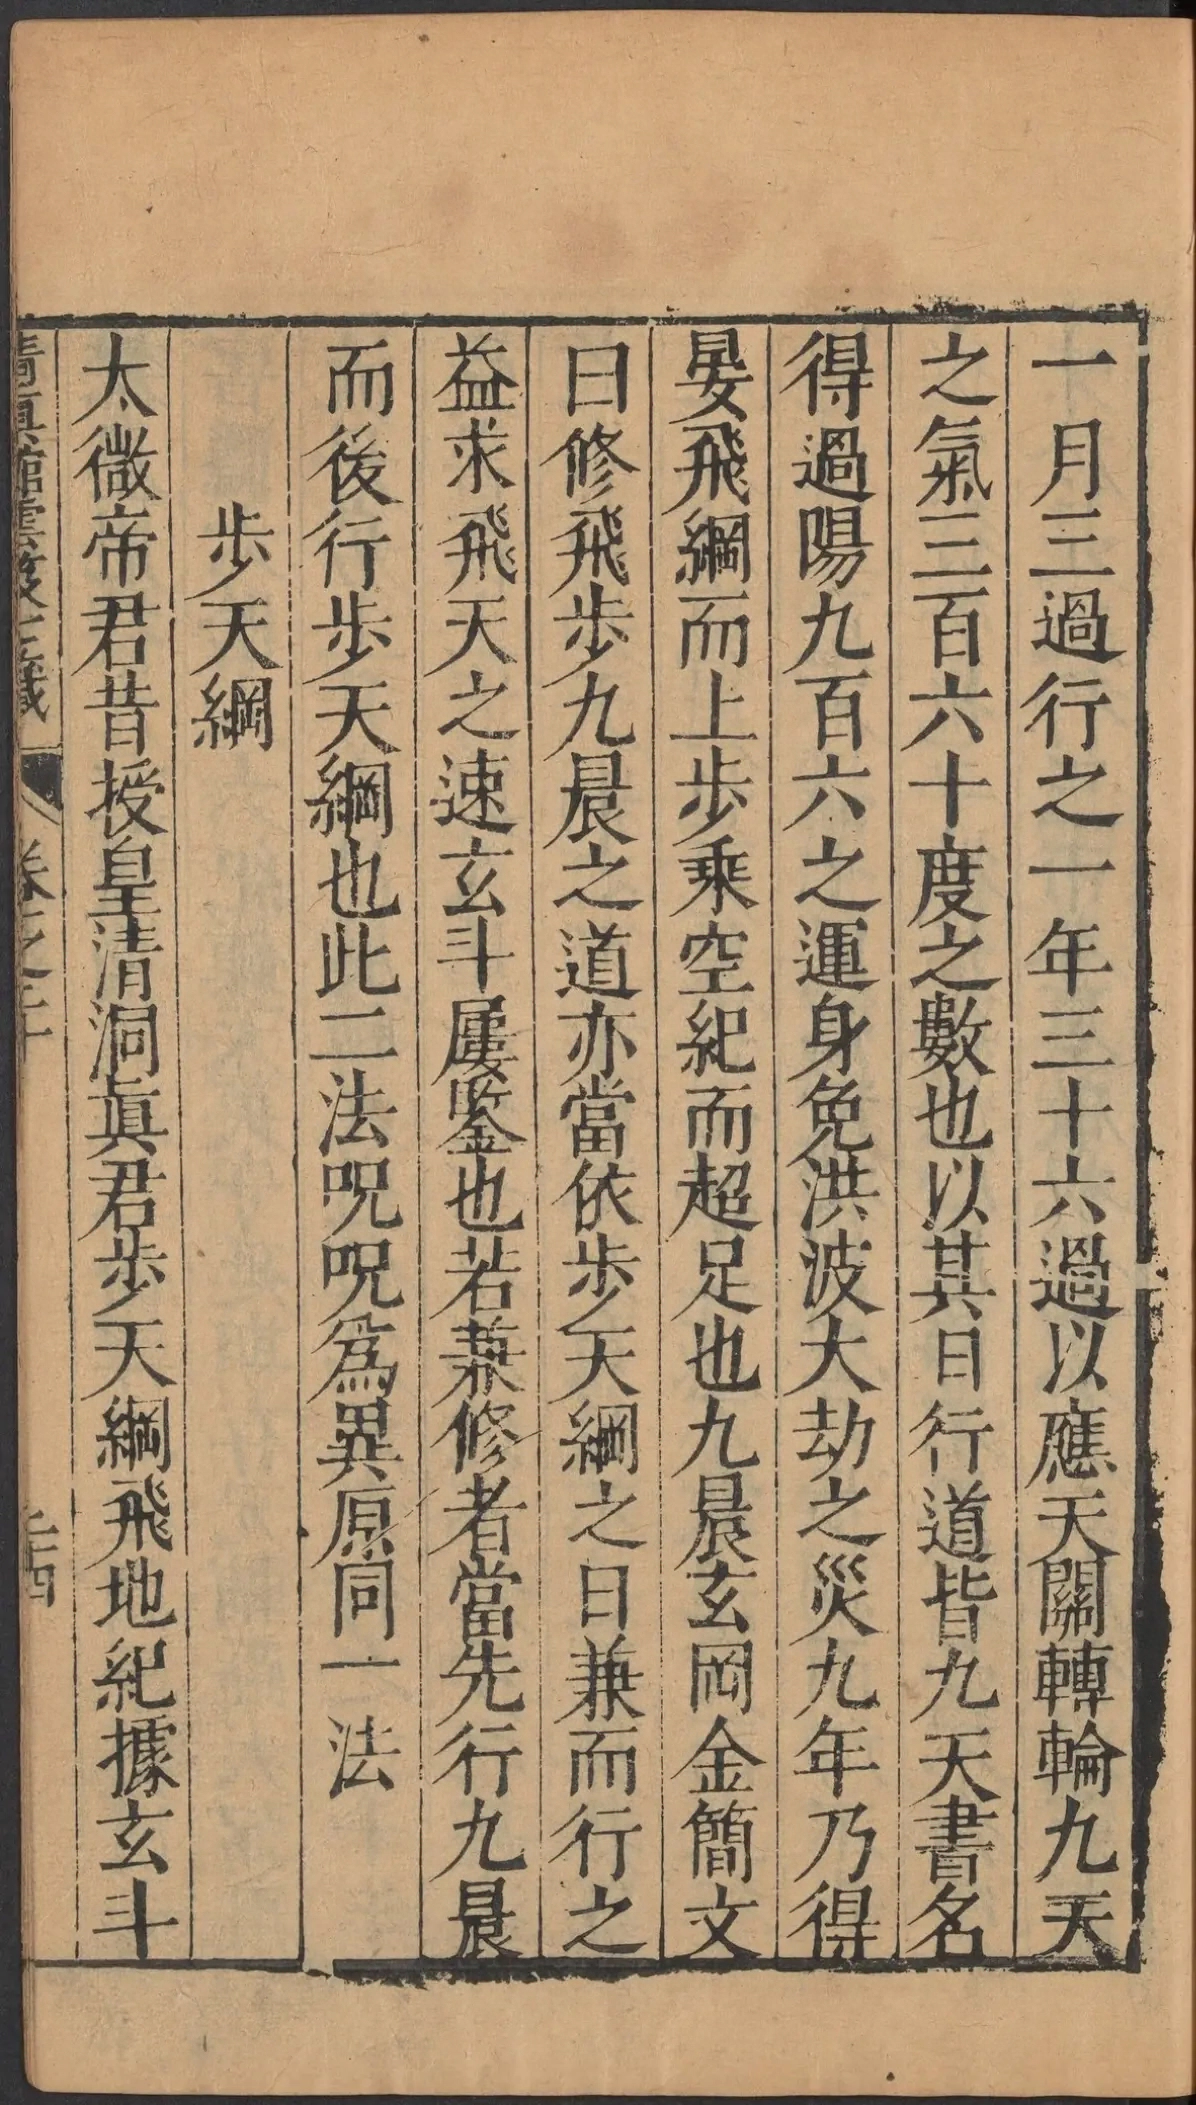 一月三過行之一年三十六過以應天關轉輪九天
之氣三百六十度之數也以其日行道皆九天書名
得過陽九百六之運身免洪波大劫之災九年乃得
晏飛綱而上步乘空紀而超足也九晨玄岡金簡文
曰修飛步九晨之道亦當依步天綱之日兼而行之
益求飛天之速玄斗屢鑒也若兼修者當先行九晨
而後行步天綱也此二法呪呪為異原同一法
步天綱
太微帝君昔授皇清洞眞君步天綱飛地紀據玄斗
清真館雲笈七籤
卷之二十